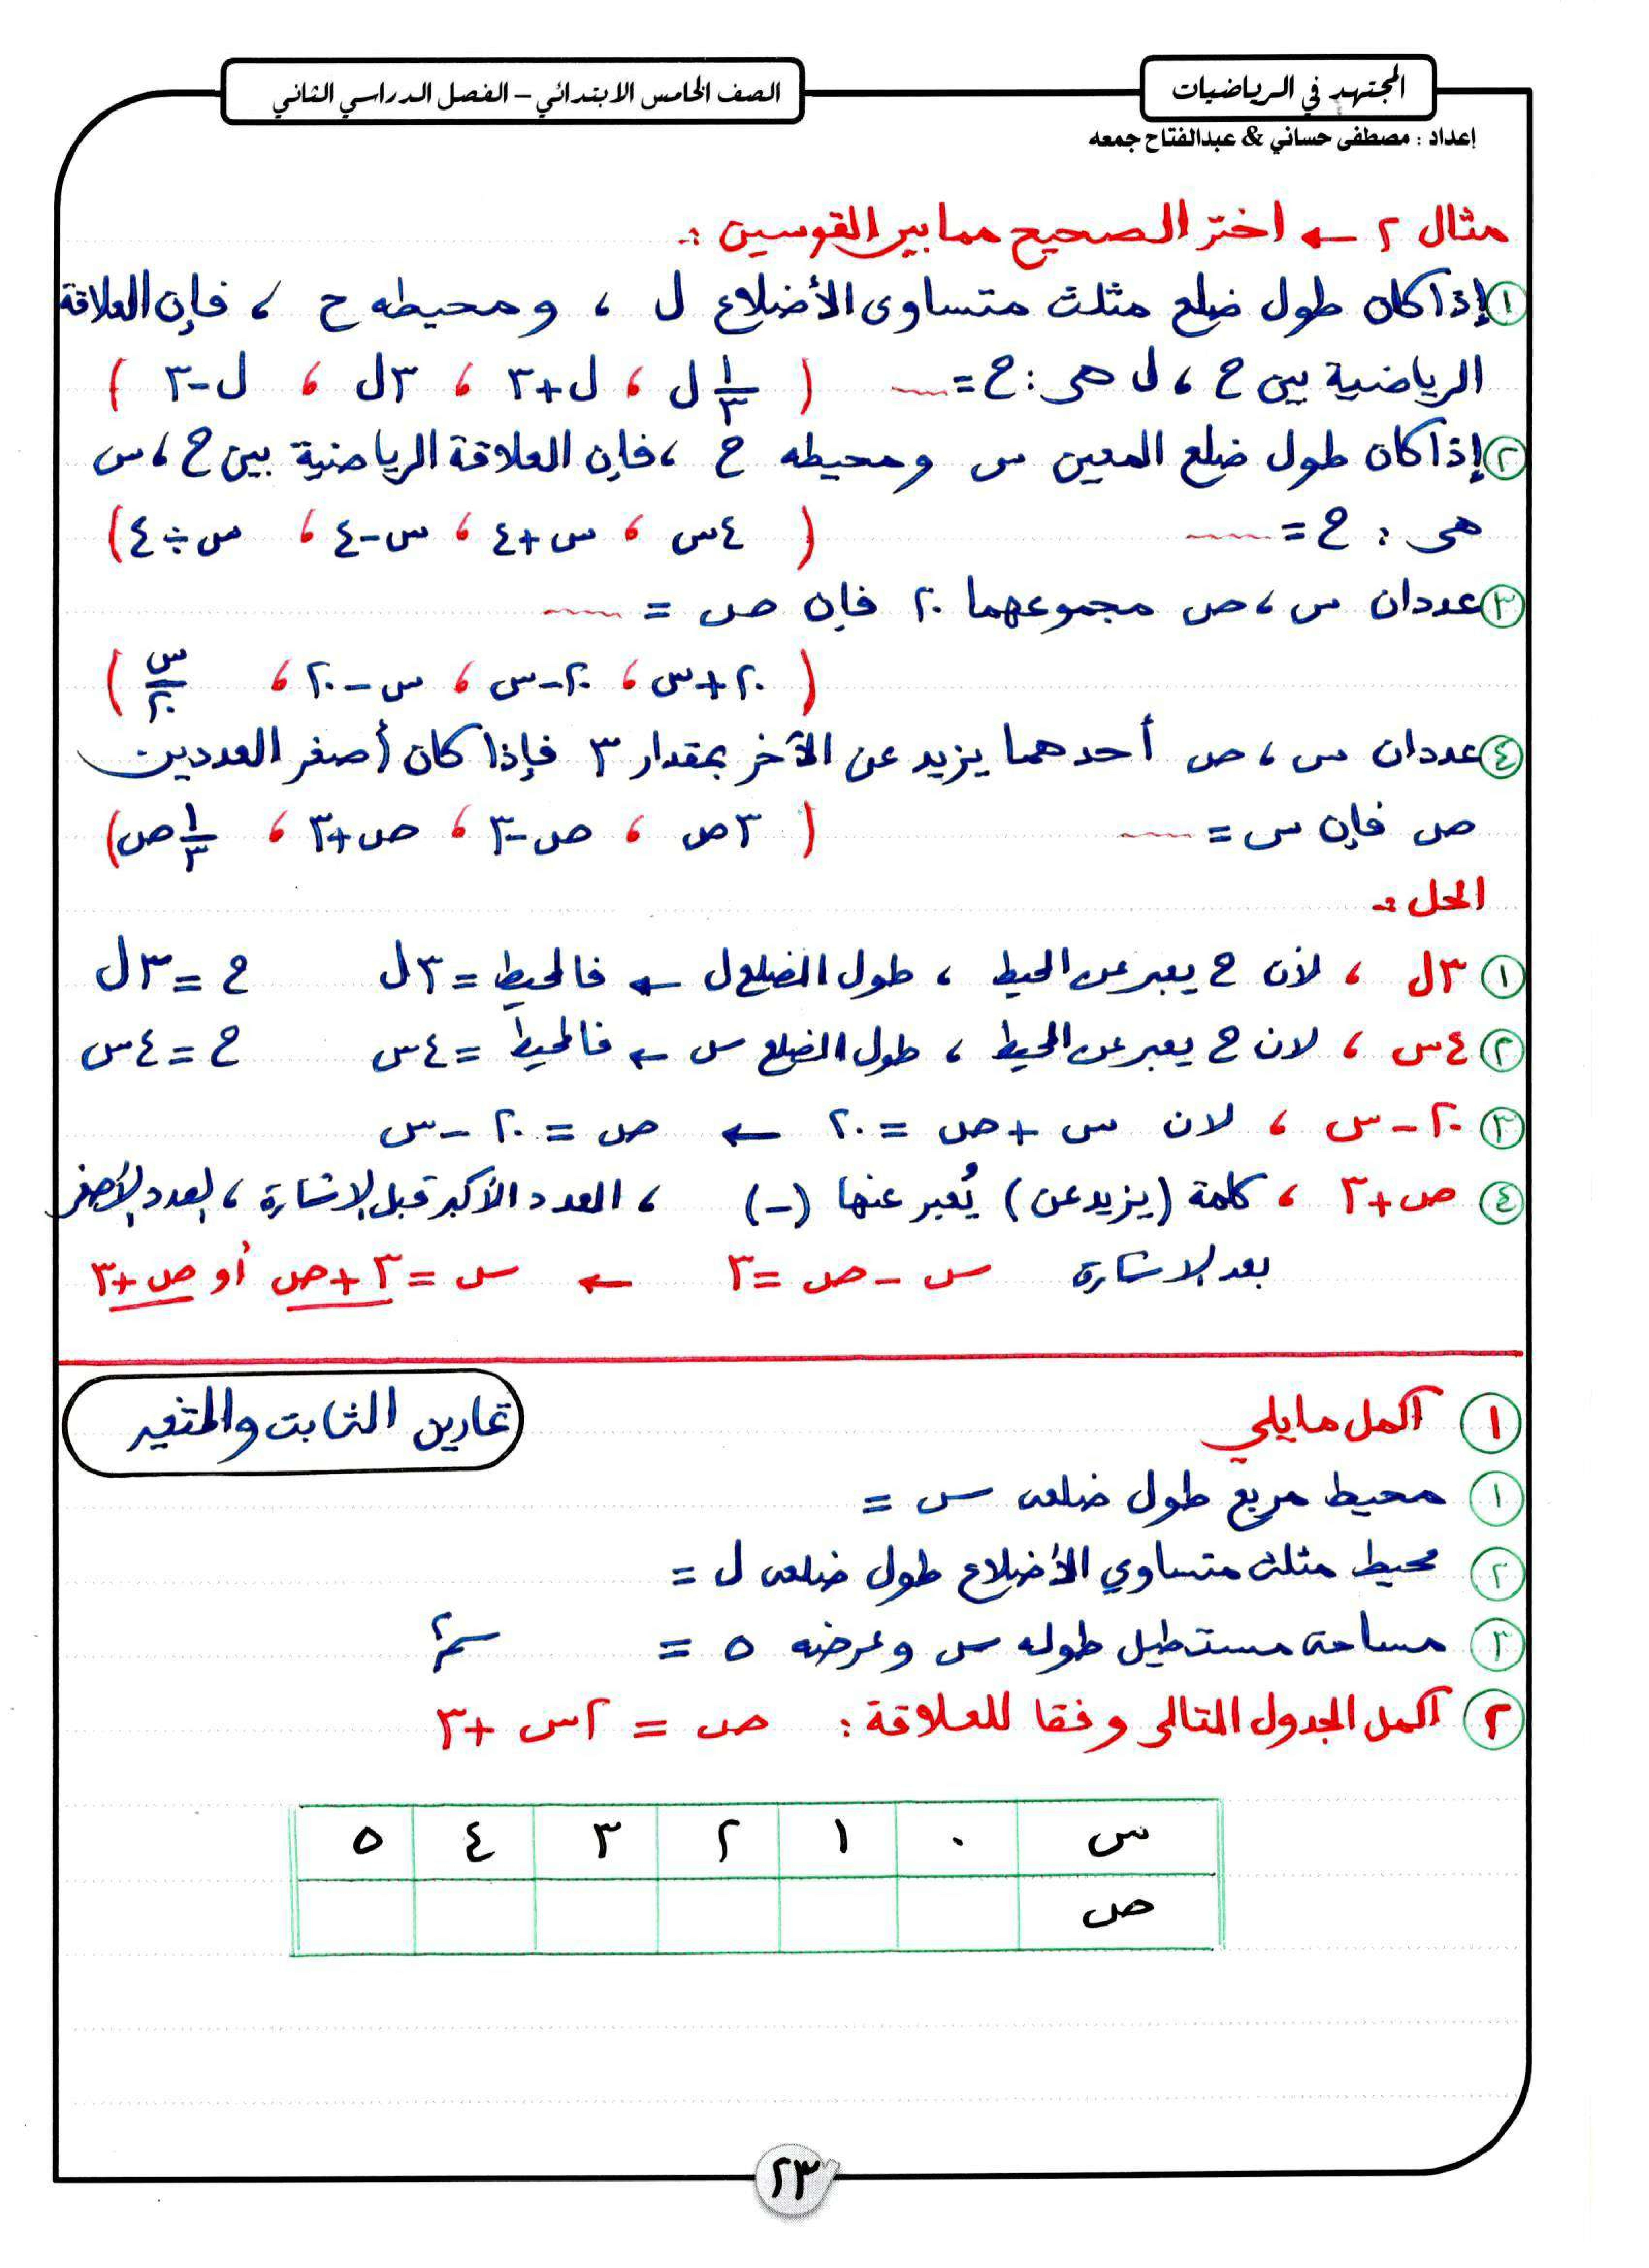 المجتهد في الرياضيات
الصف الخامس الابتدائي – الفصل الدراسي الثاني
إعداد : مصطفى حساني & عبدالفتاح جمعه
مثال ٢ ← اختر الصحيح مما بين القوسين :-
١ إذا كان طول ضلع مثلث متساوى الأضلاع ل ، ومحيطه ح ، فإن العلاقة
الرياضية بين ح ، ل هى : ح = ( ١/٣ ل ، ل+٣ ، ٣ل ، ل-٣ )
٢ إذا كان طول ضلع المعين س ومحيطه ح ، فإن العلاقة الرياضية بين ح ، س
هى : ح = ( ٤س ، س+٤ ، س-٤ ، س÷٤ )
٣ عددان س ، ص مجموعهما ٢٠ فإن ص =
( ٢٠+س ، ٢٠-س ، س-٢٠ ، س/٢٠ )
٤ عددان س ، ص أحدهما يزيد عن الآخر بمقدار ٣ فإذا كان أصغر العددين
ص فإن س = ( ٣ص ، ص-٣ ، ص+٣ ، ١/٣ ص )
الحل :-
١ ٣ل ، لأن ح يعبر عن المحيط ، طول الضلع ل ← فالمحيط = ٣ل ح = ٣ل
٢ ٤س ، لان ح يعبر عن المحيط ، طول الضلع س ← فالمحيط = ٤س ح = ٤س
٣ ٢٠-س ، لان س + ص = ٢٠ ← ص = ٢٠ - س
٤ ص+٣ ، كلمة (يزيد عن) يُعبر عنها (-) ، العدد الأكبر قبل الاشارة ، العدد الأصغر
بعد الاشارة س - ص = ٣ ← س = ٣ + ص أو ص + ٣
تمارين الثابت والمتغير
١ اكمل مايلي
١ محيط مربع طول ضلعه س =
٢ محيط مثلث متساوي الأضلاع طول ضلعه ل =
٣ مساحة مستطيل طوله س وعرضه ٥ = سم٢
٢ اكمل الجدول التالى وفقا للعلاقة : ص = ٢س + ٣
س ٠ ١ ٢ ٣ ٤ ٥
ص
٢٣